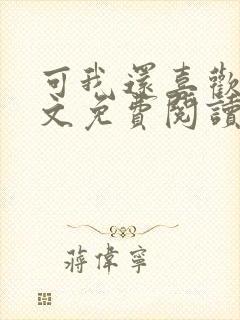 可我還喜歡
文免費閱讀
蔣偉寧